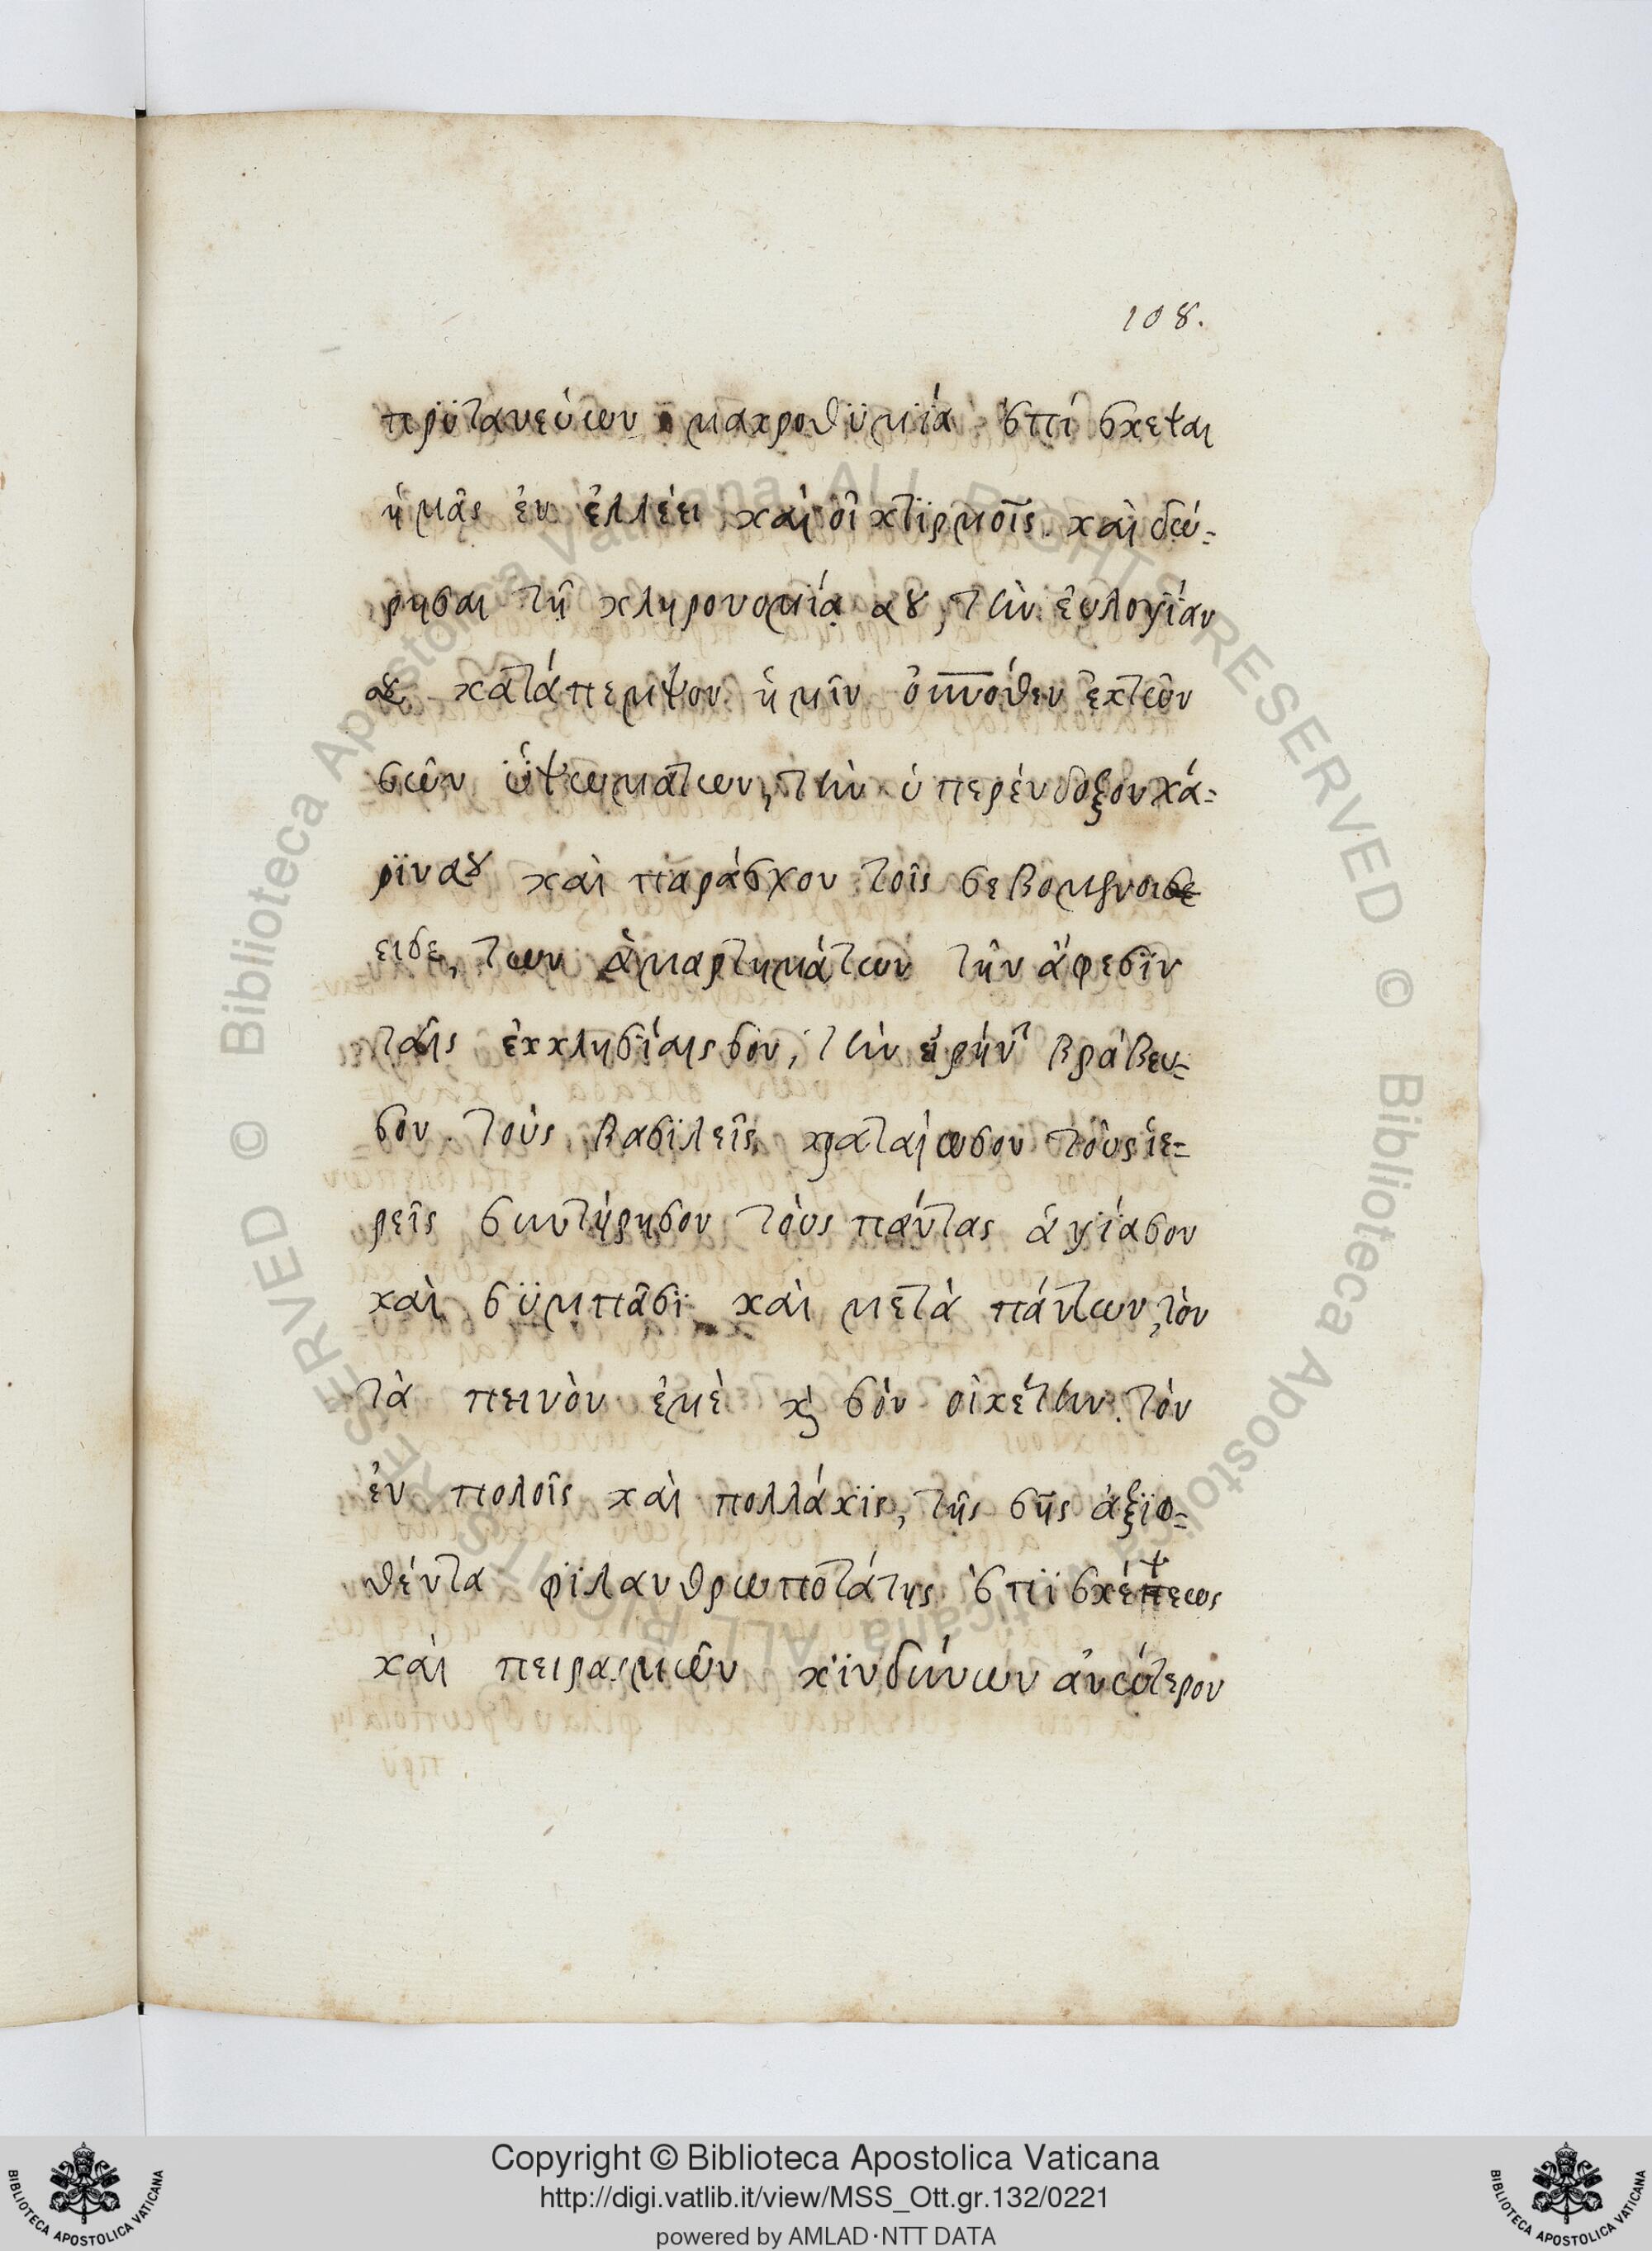 108.
πρϋτανεύων μακροθϋμϊά ἐπίσκεψαι
ἡμᾶς ἐν ἐλλέει καὶ οἰκτϊρμοῖς. καὶ δώ=
ρησαι τῆ κληρονομίᾳ σου, τὴν εὐλογΐαν
σου κατάπεμψον ἡμῖν ὀπνόθεν ἐκτῶν
σῶν ὑψωμάτων, τὴν ὑπερένδοξον χά=
ρϊν σου καὶ παράσχου τοῖς σεβομένοισε
εισε, των ἁμαρτημάτων τὴν ἄφεσϊν
ταῖς ἐκκλησΐαις σου, τὴν εἰρήν βράβευ=
σον. τοὺς βασϊλεῖς κραταίωσον τοὺς ἱε=
ρεῖς συντήρησον τοὺς πάντας ἁγΐασον
καὶ σϋμπᾶσϊ καὶ μετὰ πάντων, τὸν
τὰ πεινὸν ἐμὲ κὶ σὸν οἰκέτην. τὸν
ἐν πολοῖς καὶ πολλάκϊς, τῆς σῆς ἀξϊο=
θέντα φϊλανθρωποτάτης ἐπϊσκέπεως
ψ
καὶ πειρασμῶν κϊνδύνων ἀνώτερον
Copyright © Biblioteca Apostolica Vaticana
http://digi.vatlib.it/view/MSS_Ott.gr.132/0221
powered by AMLAD·NTT DATA
BIBLIOTECA APOSTOLICA VATICANA
BIBLIOTECA APOSTOLICA VATICANA
© Biblioteca Apostolica Vaticana ALL RIGHTS RESERVED
© Biblioteca Apostolica Vaticana ALL RIGHTS RESERVED